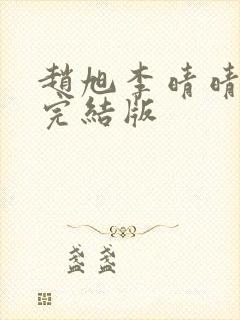 趙旭李晴晴
完結版
盏盏